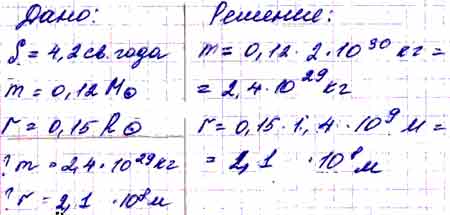 Дано:
S = 4,2 св. года
m = 0,12 M⊙
r = 0,15 R⊙
? m = 2,4 · 10²⁹ кг
? r = 2,1 · 10⁸ м
Решение:
m = 0,12 · 2 · 10³⁰ кг =
= 2,4 · 10²⁹ кг
r = 0,15 · 1,4 · 10⁹ м =
= 2,1 · 10⁸ м